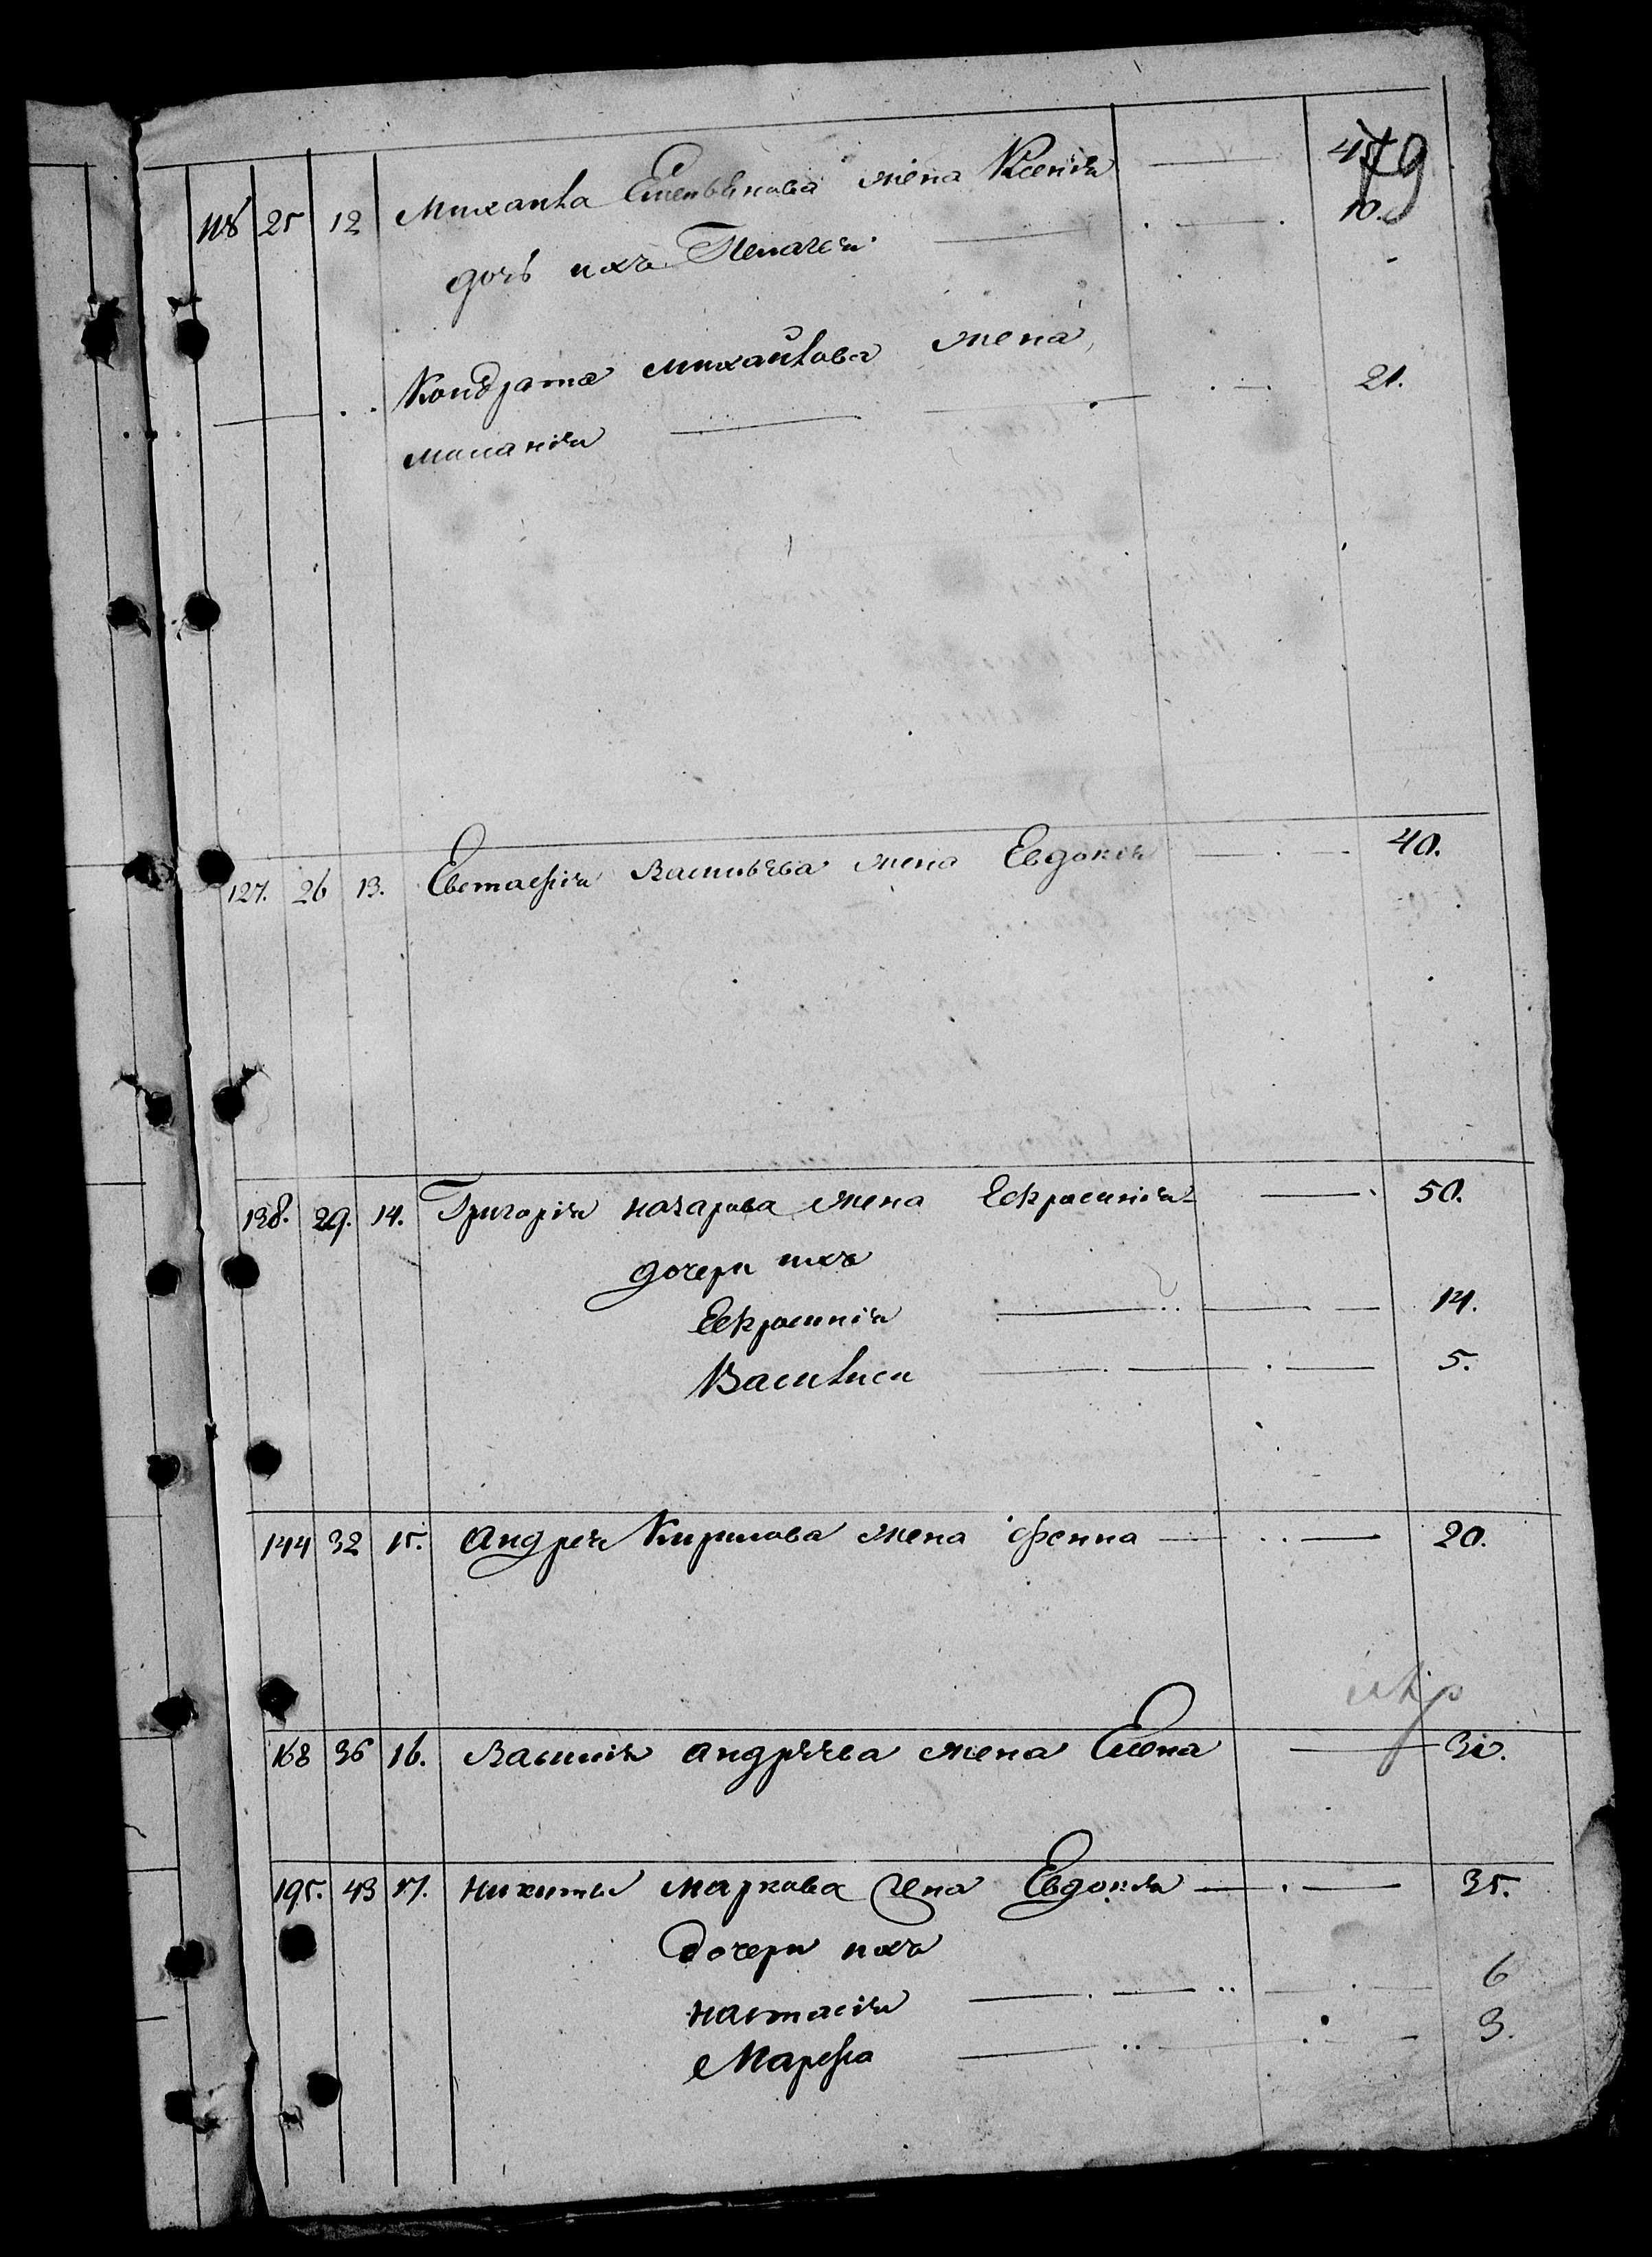 79
118 25 12 Михаила Емельянова жена Ксенія
дочь ихъ Пелагея 10.
Кондрата Михайлова жена 21.
Миланія
127. 26 13. Евстафія Васильева жена Евдокія 40.
138. 29. 14. Григорія Назарова жена Ефросинія 50.
дочери ихъ
Ефросинія 14.
Василиса 5.
144 32 15. Андрея Кирилова жена Фекла 20.
168 36 16. Василія Андрѣева жена Елена
195. 43 17. Никиты Маркова жена Евдокія 35.
дочери ихъ
Настасія 6
Марфа 3.